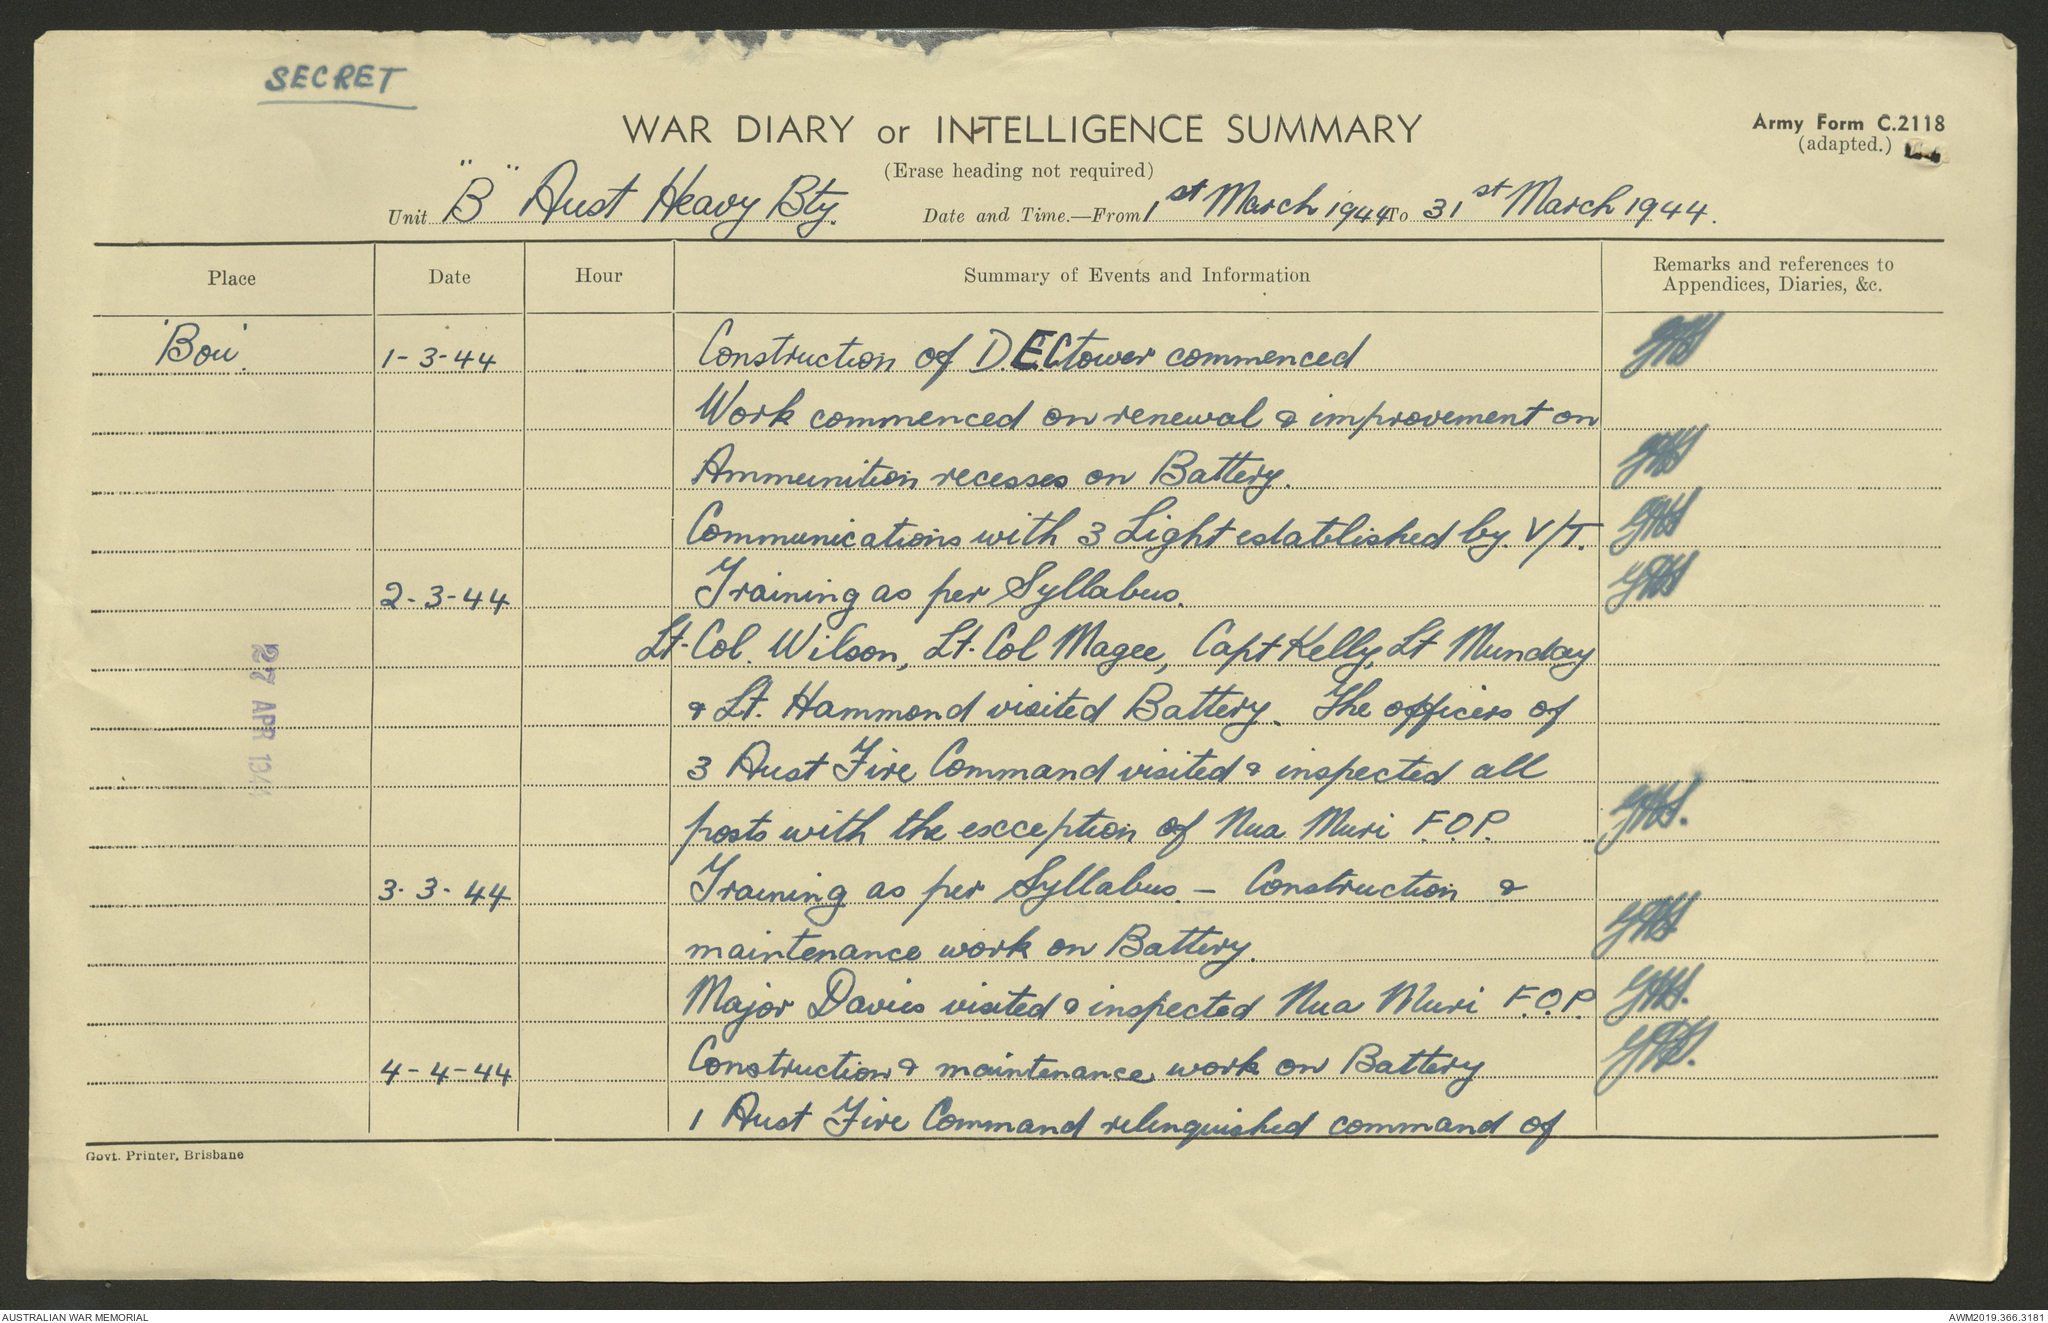 SECRET
WAR DIARY or INTELLIGENCE SUMMARY
Army Form C.2118
(adapted.)
(Erase heading not required)
Unit "B" Aust Heavy Bty. Date and Time.—From 1st March 1944 To 31st March 1944.
Place Date Hour Summary of Events and Information Remarks and references to
Appendices, Diaries, &c.
'Boii'. 1-3-44 Construction of D.E.C tower commenced
Work commenced on renewal & improvement on
Ammunition recesses on Battery.
Communications with 3 Light established by V/T.
2-3-44 Training as per Syllabus.
Lt-Col. Wilson, Lt-Col Magee, Capt Kelly, Lt Munday
& Lt. Hammond visited Battery. The officers of
3 Aust Fire Command visited & inspected all
posts with the exception of Nua Muri F.O.P.
3-3-44 Training as per Syllabus - Construction &
maintenance work on Battery.
Major Davies visited & inspected Nua Muri F.O.P.
4-4-44 Construction & maintenance work on Battery
1 Aust Fire Command relinquished command of
27 APR 194
Govt. Printer, Brisbane
AUSTRALIAN WAR MEMORIAL
AWM2019.366.3181